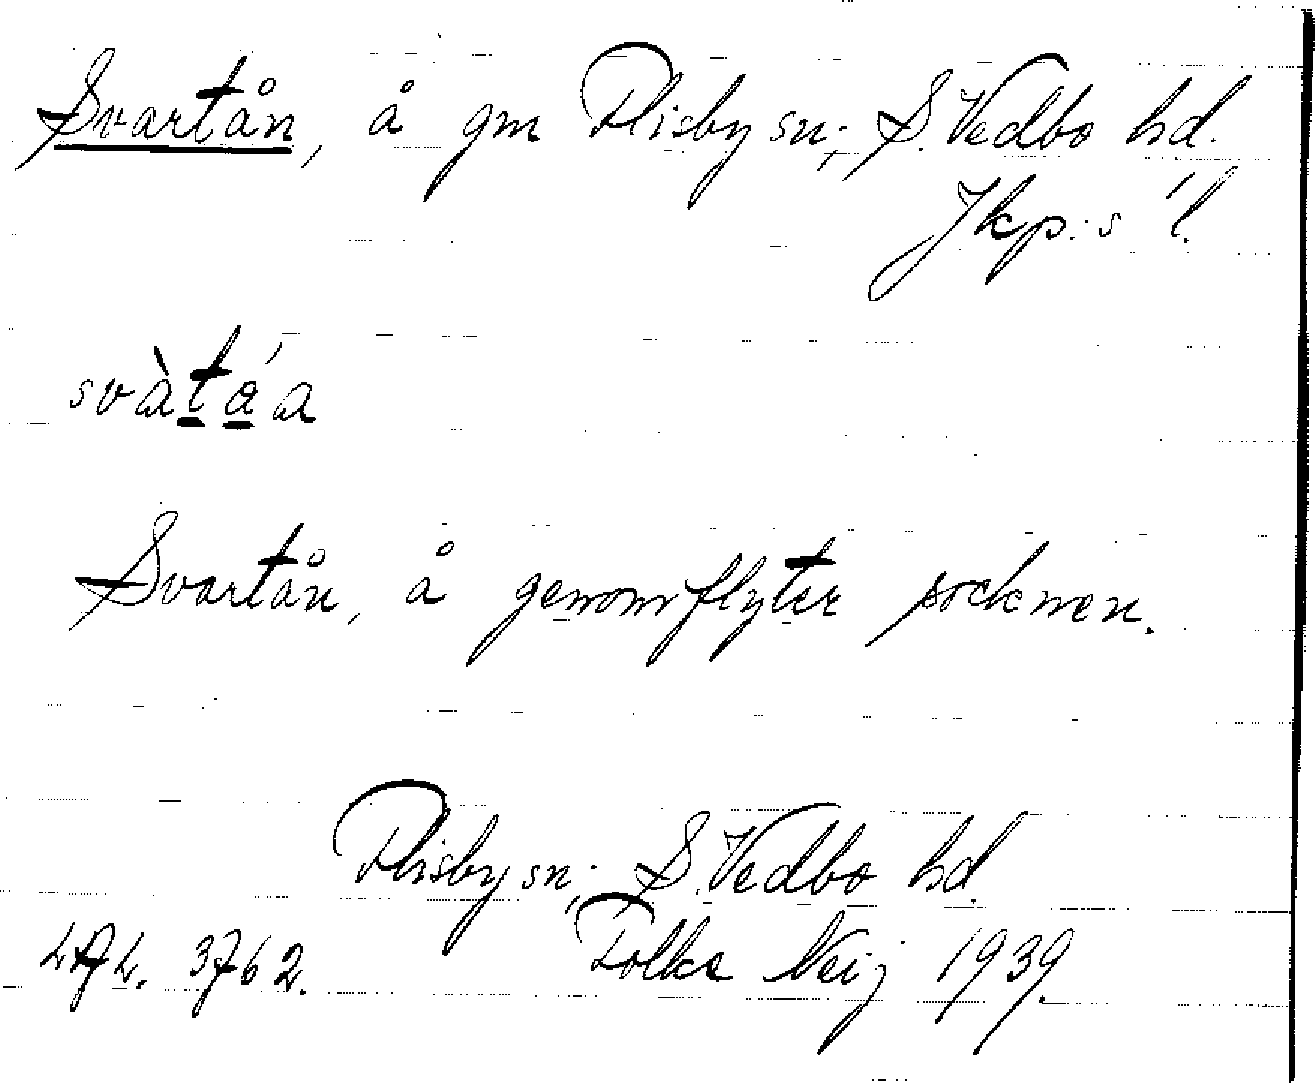 Svartån, å gm Flisby sn; S. Vedbo hd.
Jkp:s l.
svàtá́a
Svartån, å genomflyter socknen.
Flisby sn; S. Vedbo hd.
Folke Neij 1939.
3762.